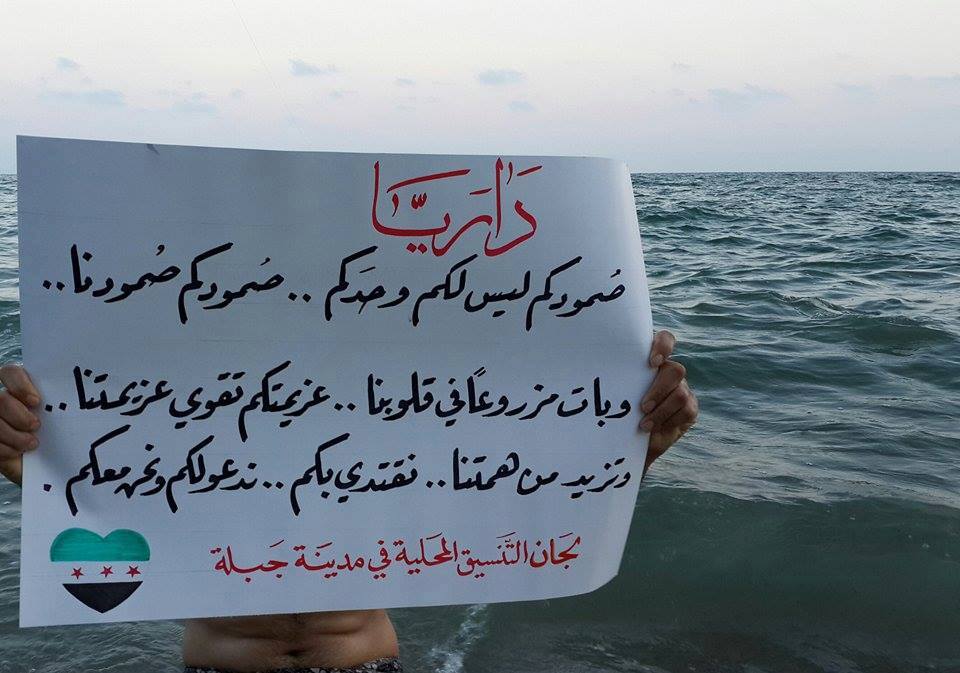 دَارَيَّا
صُمودكم ليس لكم وحدَكم .. صُمودكم صُمودنا ..
وبات مزروعاً في قلوبنا .. عزيمتكم تقوي عزيمتنا ..
وتزيد من همتنا .. نقتدي بكم .. ندعو لكم ونحن معكم .
لجان التَّنسيق المحَلية في مدينَة جَبلة